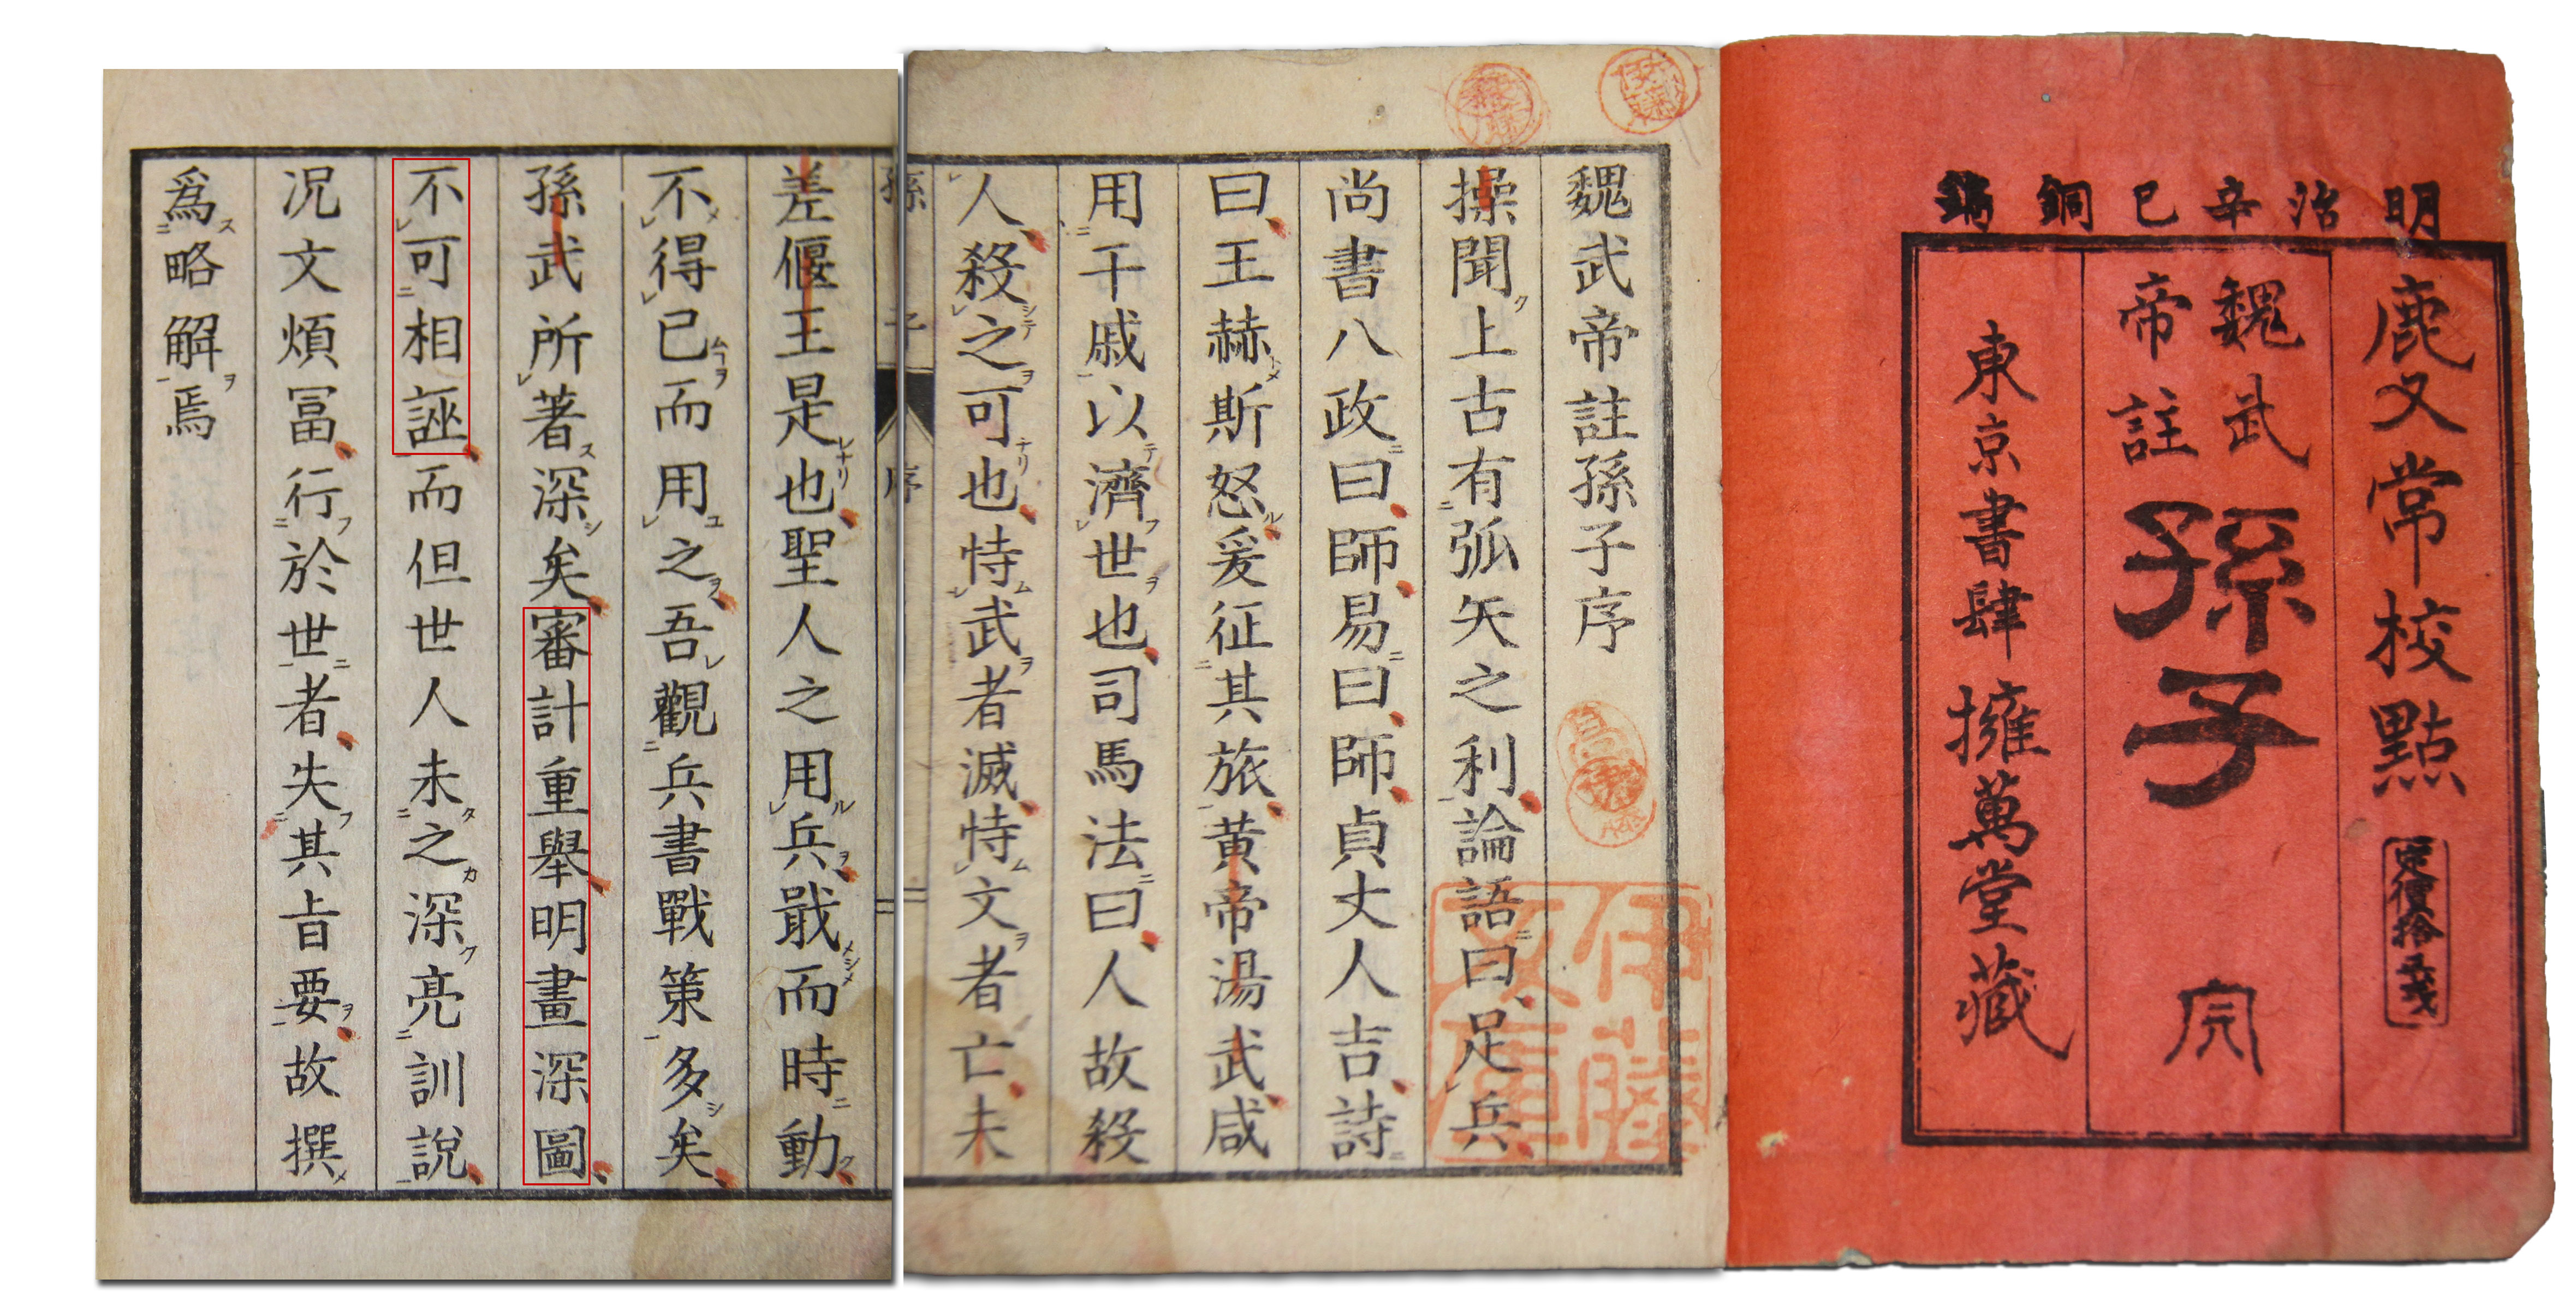 明治辛巳銅鐫
鹿又常校點
定價拾五戔
魏武
帝註
孫子
完
東京書肆 擁萬堂藏
魏武帝註孫子序
操聞上古有弧矢之利論語曰足兵
尚書八政曰師易曰師貞丈人吉詩
曰王赫斯怒爰征其旅黃帝湯武咸
用干戚以濟世也司馬法曰人故殺
人殺之可也恃武者滅恃文者亡夫
孫子 序
差偃王是也聖人之用兵戢而時動
不得已而用之吾觀兵書戰策多矣
孫武所著深矣審計重舉明畫深圖
不可相誣而但世人未之深亮訓說
况文煩冨行於世者失其旨要故撰
爲略解焉
伊藤